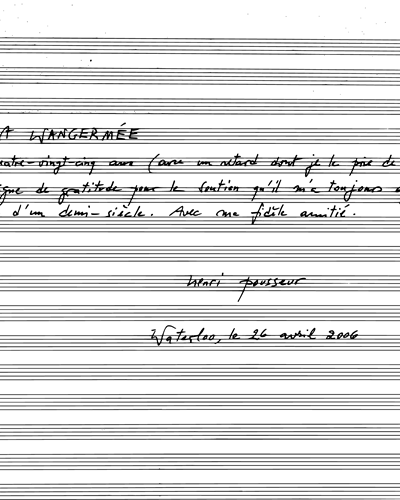 A WANGERMÉE
uatre-vingt-cinq ans (avec un retard dont je le prie de
igne de gratitude pour le soutien qu'il m'a toujours
d'un demi-siècle. Avec ma fidèle amitié.
henri pousseur
Waterloo, le 26 avril 2006